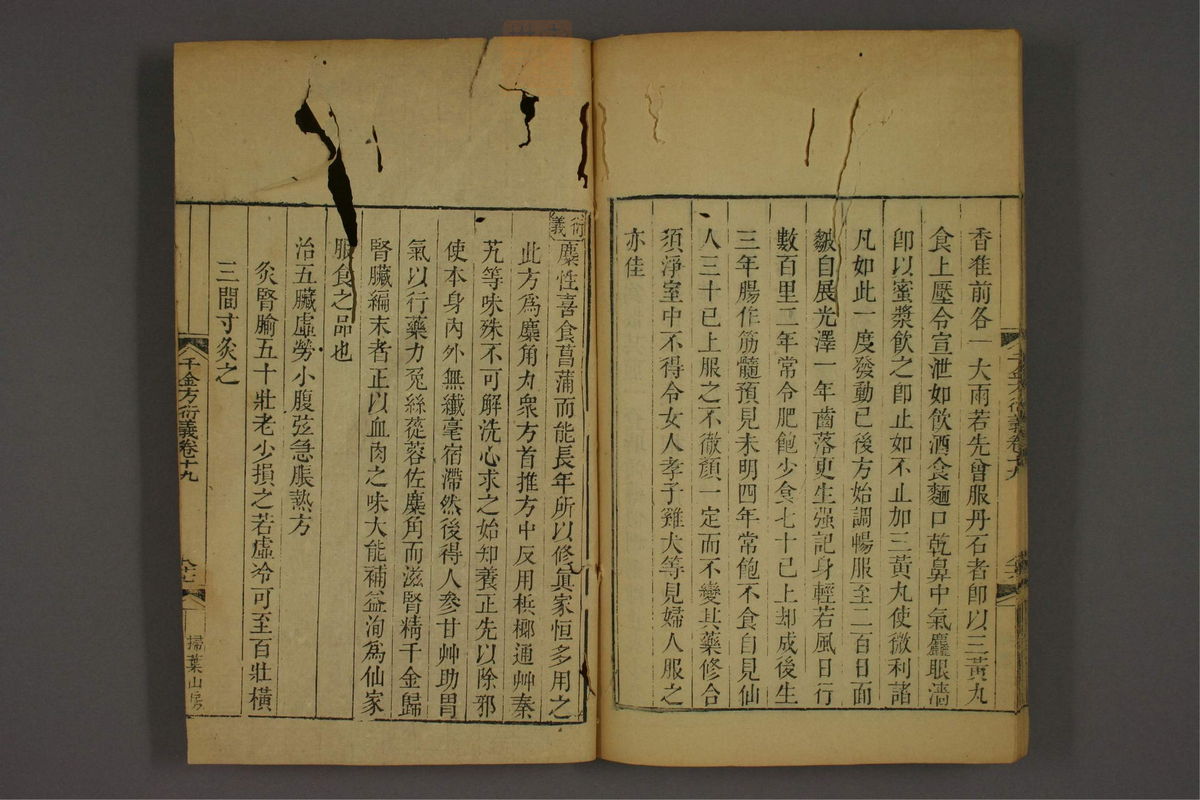 香準前各一大兩若先曾服丹石者卽以三黃丸
食上壓令宣泄如飲酒食麵口乾鼻中氣麤眼濇
卽以蜜漿飲之卽止如不止加三黃丸使微利諸
凡如此一度發動已後方始調暢服至二百日面
皺自展光澤一年齒落更生强記身輕若風日行
數百里二年常令肥飽少食七十已上却成後生
三年腸作筋髓預見未明四年常飽不食自見仙
人三十已上服之不徹顏一定而不變其藥修合
須淨室中不得令女人孝子雞犬等見婦人服之
亦佳
千金方衍義卷十九
衍義
麋性喜食菖蒲而能長年所以修眞家恒多用之
此方爲麋角丸衆方首推方中反用檳榔通艸秦
艽等味殊不可解洗心求之始知養正先以除邪
使本身內外無纖毫宿滯然後得人參甘艸助胃
氣以行藥力兔絲蓯蓉佐麋角而滋腎精千金歸
腎臟編末者正以血肉之味大能補益洵爲仙家
服食之品也
治五臟虛勞小腹弦急脹熱方
灸腎腧五十壯老少損之若虛冷可至百壯橫
三間寸灸之
千金方衍義卷十九
掃葉山房